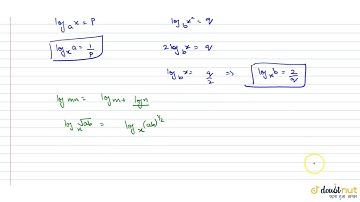 log_a x = P
log_b x² = q
log_x a = 1/P
2 log_b x = q
log_b x = q/2 ⇒ log_x b = 2/q
log mn = log m + log n
log_x √ab = log_x (ab)^1/2
doubtnut